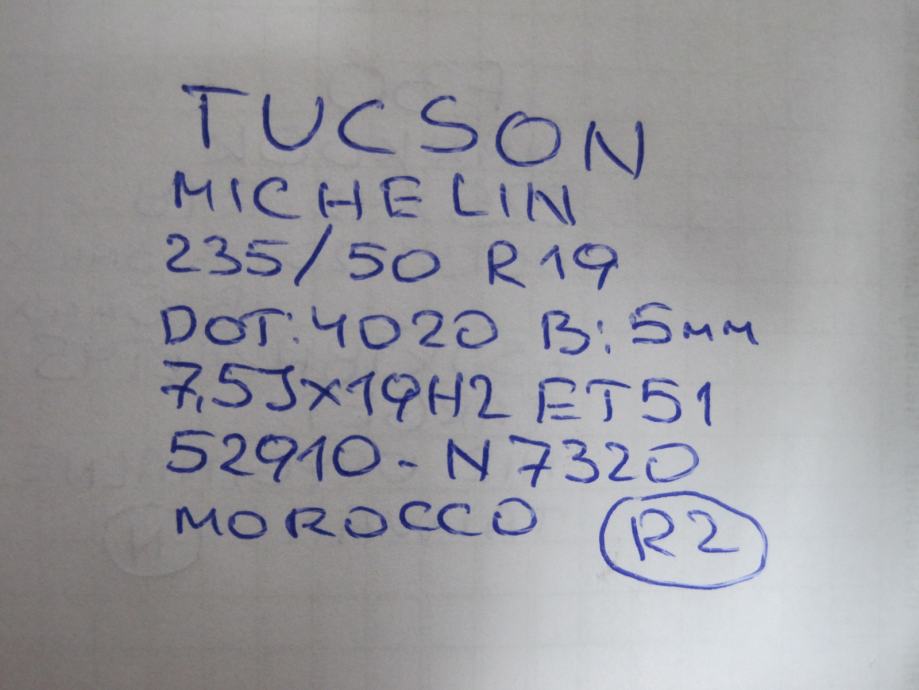 TUCSON
MICHELIN
235/50 R19
DOT: 4020 B: 5mm
7,5Jx19H2 ET51
52910-N7320
MOROCCO R2